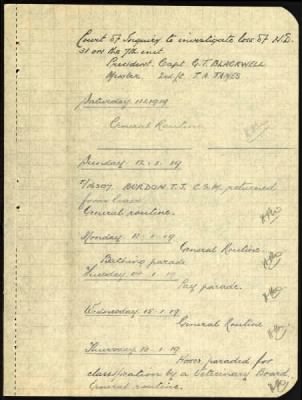 Court of Inquiry to investigate loss of H.D.
31 on the 7th inst
President. Capt G.T. BLACKWELL
Member 2nd Lt. J.A.
Saturday 11.1.1919
General Routine
Sunday 12-1-19
BURDON T.J. C.S.M. returned
from leave
General routine.
Monday 13-1-19
General Routine.
Bathing parade
Tuesday 14-1-19
Pay parade.
Wednesday 15-1-19
General Routine
Thursday 16-1-19
Horses paraded for
classification by a Veterinary Board.
General routine.